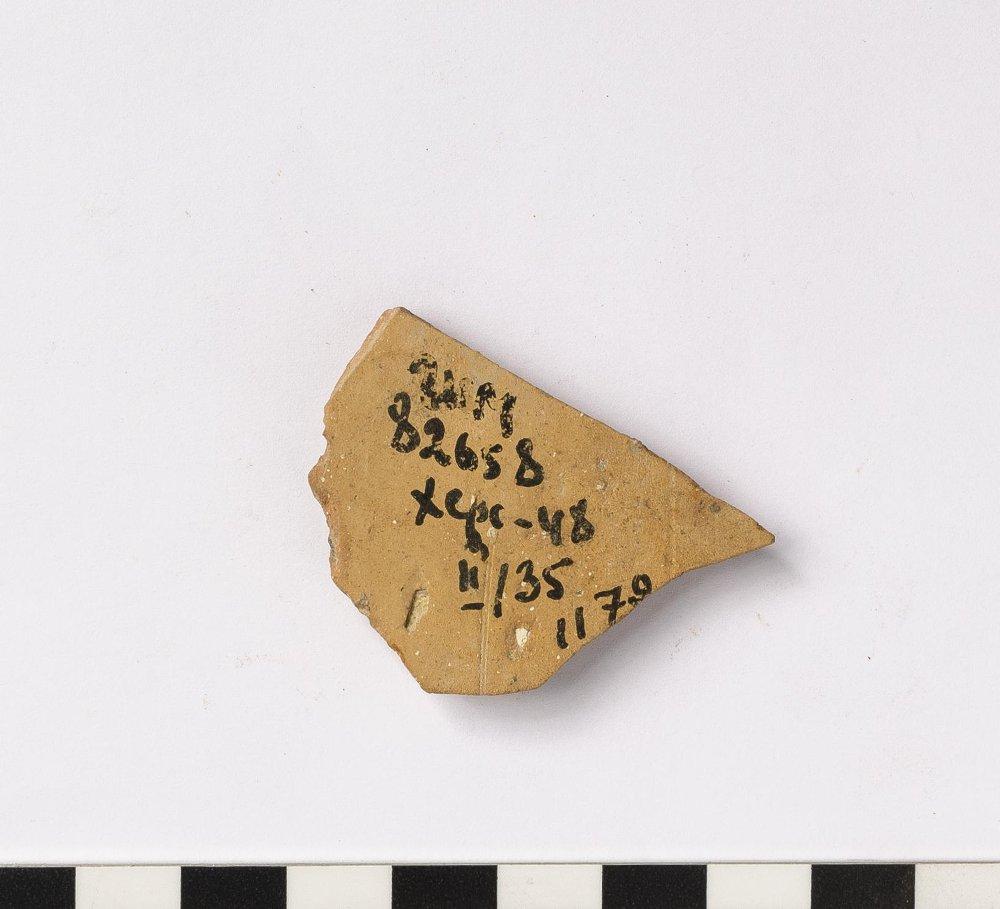 82658
Херс-48
II/35
1179